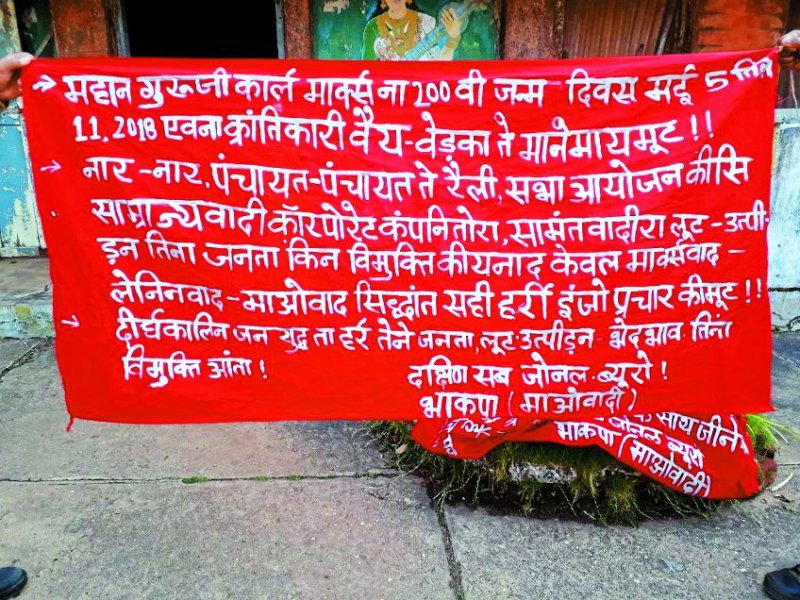 → महान गुरूजी कार्ल मार्क्स ना 200 वी जन्म दिवस मई 5 तिन
11, 2018 एवना क्रांतिकारी वैय-वेड़का ते मानेमायमूट !!
→ नार-नार, पंचायत-पंचायत ते रैली, सभा आयोजन कीसि
साम्राज्यवादी कॉरपोरेट कंपनि तोरा, सामंतवादीरा लूट-उत्पी-
ड़न तिना जनता किन विमुक्ति कीयनाद केवल मार्क्सवाद-
लेनिनवाद-माओवाद सिद्धांत सही हर्री इंजो प्रचार कीमूट !!
→ दीर्घकालिन जन युद्ध ता हर्र तेने जनता, लूट-उत्पीड़न भेदभाव तिना
विमुक्ति आंता !
दक्षिण सब जोनल ब्यूरो !
भाकपा (माओवादी)
के साथ जीने
जोनल ब्यूरो
भाकपा (माओवादी)